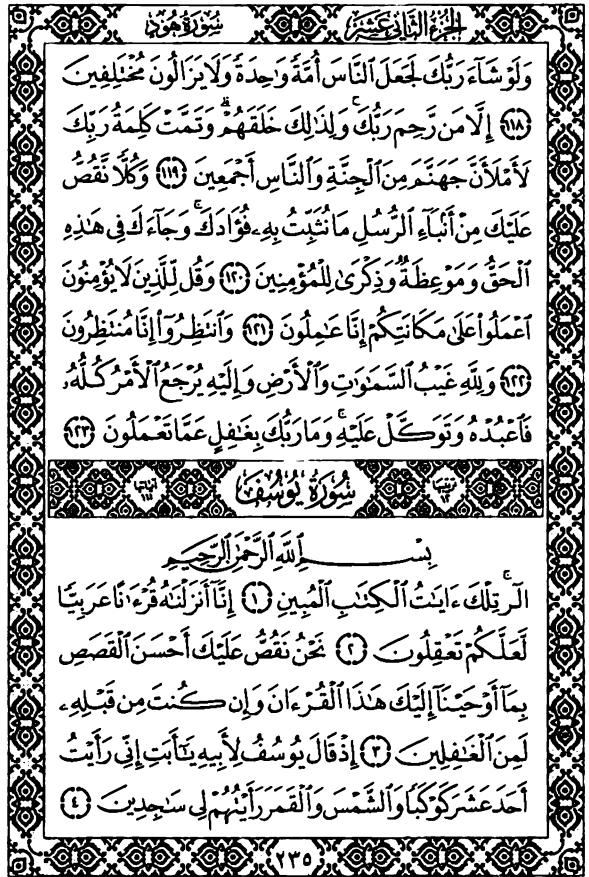 الجزء الثاني عشر
سورة هود
وَلَوْ شَآءَ رَبُّكَ لَجَعَلَ ٱلنَّاسَ أُمَّةً وَٰحِدَةً وَلَا يَزَالُونَ مُخْتَلِفِينَ
﴿١١٨﴾ إِلَّا مَن رَّحِمَ رَبُّكَ ۚ وَلِذَٰلِكَ خَلَقَهُمْ ۗ وَتَمَّتْ كَلِمَةُ رَبِّكَ
لَأَمْلَأَنَّ جَهَنَّمَ مِنَ ٱلْجِنَّةِ وَٱلنَّاسِ أَجْمَعِينَ ﴿١١٩﴾ وَكُلًّا نَّقُصُّ
عَلَيْكَ مِنْ أَنۢبَآءِ ٱلرُّسُلِ مَا نُثَبِّتُ بِهِۦ فُؤَادَكَ ۚ وَجَآءَكَ فِى هَٰذِهِ
ٱلْحَقُّ وَمَوْعِظَةٌ وَذِكْرَىٰ لِلْمُؤْمِنِينَ ﴿١٢٠﴾ وَقُل لِّلَّذِينَ لَا يُؤْمِنُونَ
ٱعْمَلُوا۟ عَلَىٰ مَكَانَتِكُمْ إِنَّا عَٰمِلُونَ ﴿١٢١﴾ وَٱنتَظِرُوٓا۟ إِنَّا مُنتَظِرُونَ
﴿١٢٢﴾ وَلِلَّهِ غَيْبُ ٱلسَّمَٰوَٰتِ وَٱلْأَرْضِ وَإِلَيْهِ يُرْجَعُ ٱلْأَمْرُ كُلُّهُۥ
فَٱعْبُدْهُ وَتَوَكَّلْ عَلَيْهِ ۚ وَمَا رَبُّكَ بِغَٰفِلٍ عَمَّا تَعْمَلُونَ ﴿١٢٣﴾
سُورَةُ يُوسُفَ
بِسْمِ ٱللَّهِ ٱلرَّحْمَٰنِ ٱلرَّحِيمِ
الٓر ۚ تِلْكَ ءَايَٰتُ ٱلْكِتَٰبِ ٱلْمُبِينِ ﴿١﴾ إِنَّآ أَنزَلْنَٰهُ قُرْءَٰنًا عَرَبِيًّا
لَّعَلَّكُمْ تَعْقِلُونَ ﴿٢﴾ نَحْنُ نَقُصُّ عَلَيْكَ أَحْسَنَ ٱلْقَصَصِ
بِمَآ أَوْحَيْنَآ إِلَيْكَ هَٰذَا ٱلْقُرْءَانَ وَإِن كُنتَ مِن قَبْلِهِۦ
لَمِنَ ٱلْغَٰفِلِينَ ﴿٣﴾ إِذْ قَالَ يُوسُفُ لِأَبِيهِ يَٰٓأَبَتِ إِنِّى رَأَيْتُ
أَحَدَ عَشَرَ كَوْكَبًا وَٱلشَّمْسَ وَٱلْقَمَرَ رَأَيْتُهُمْ لِى سَٰجِدِينَ ﴿٤﴾
٢٣٥